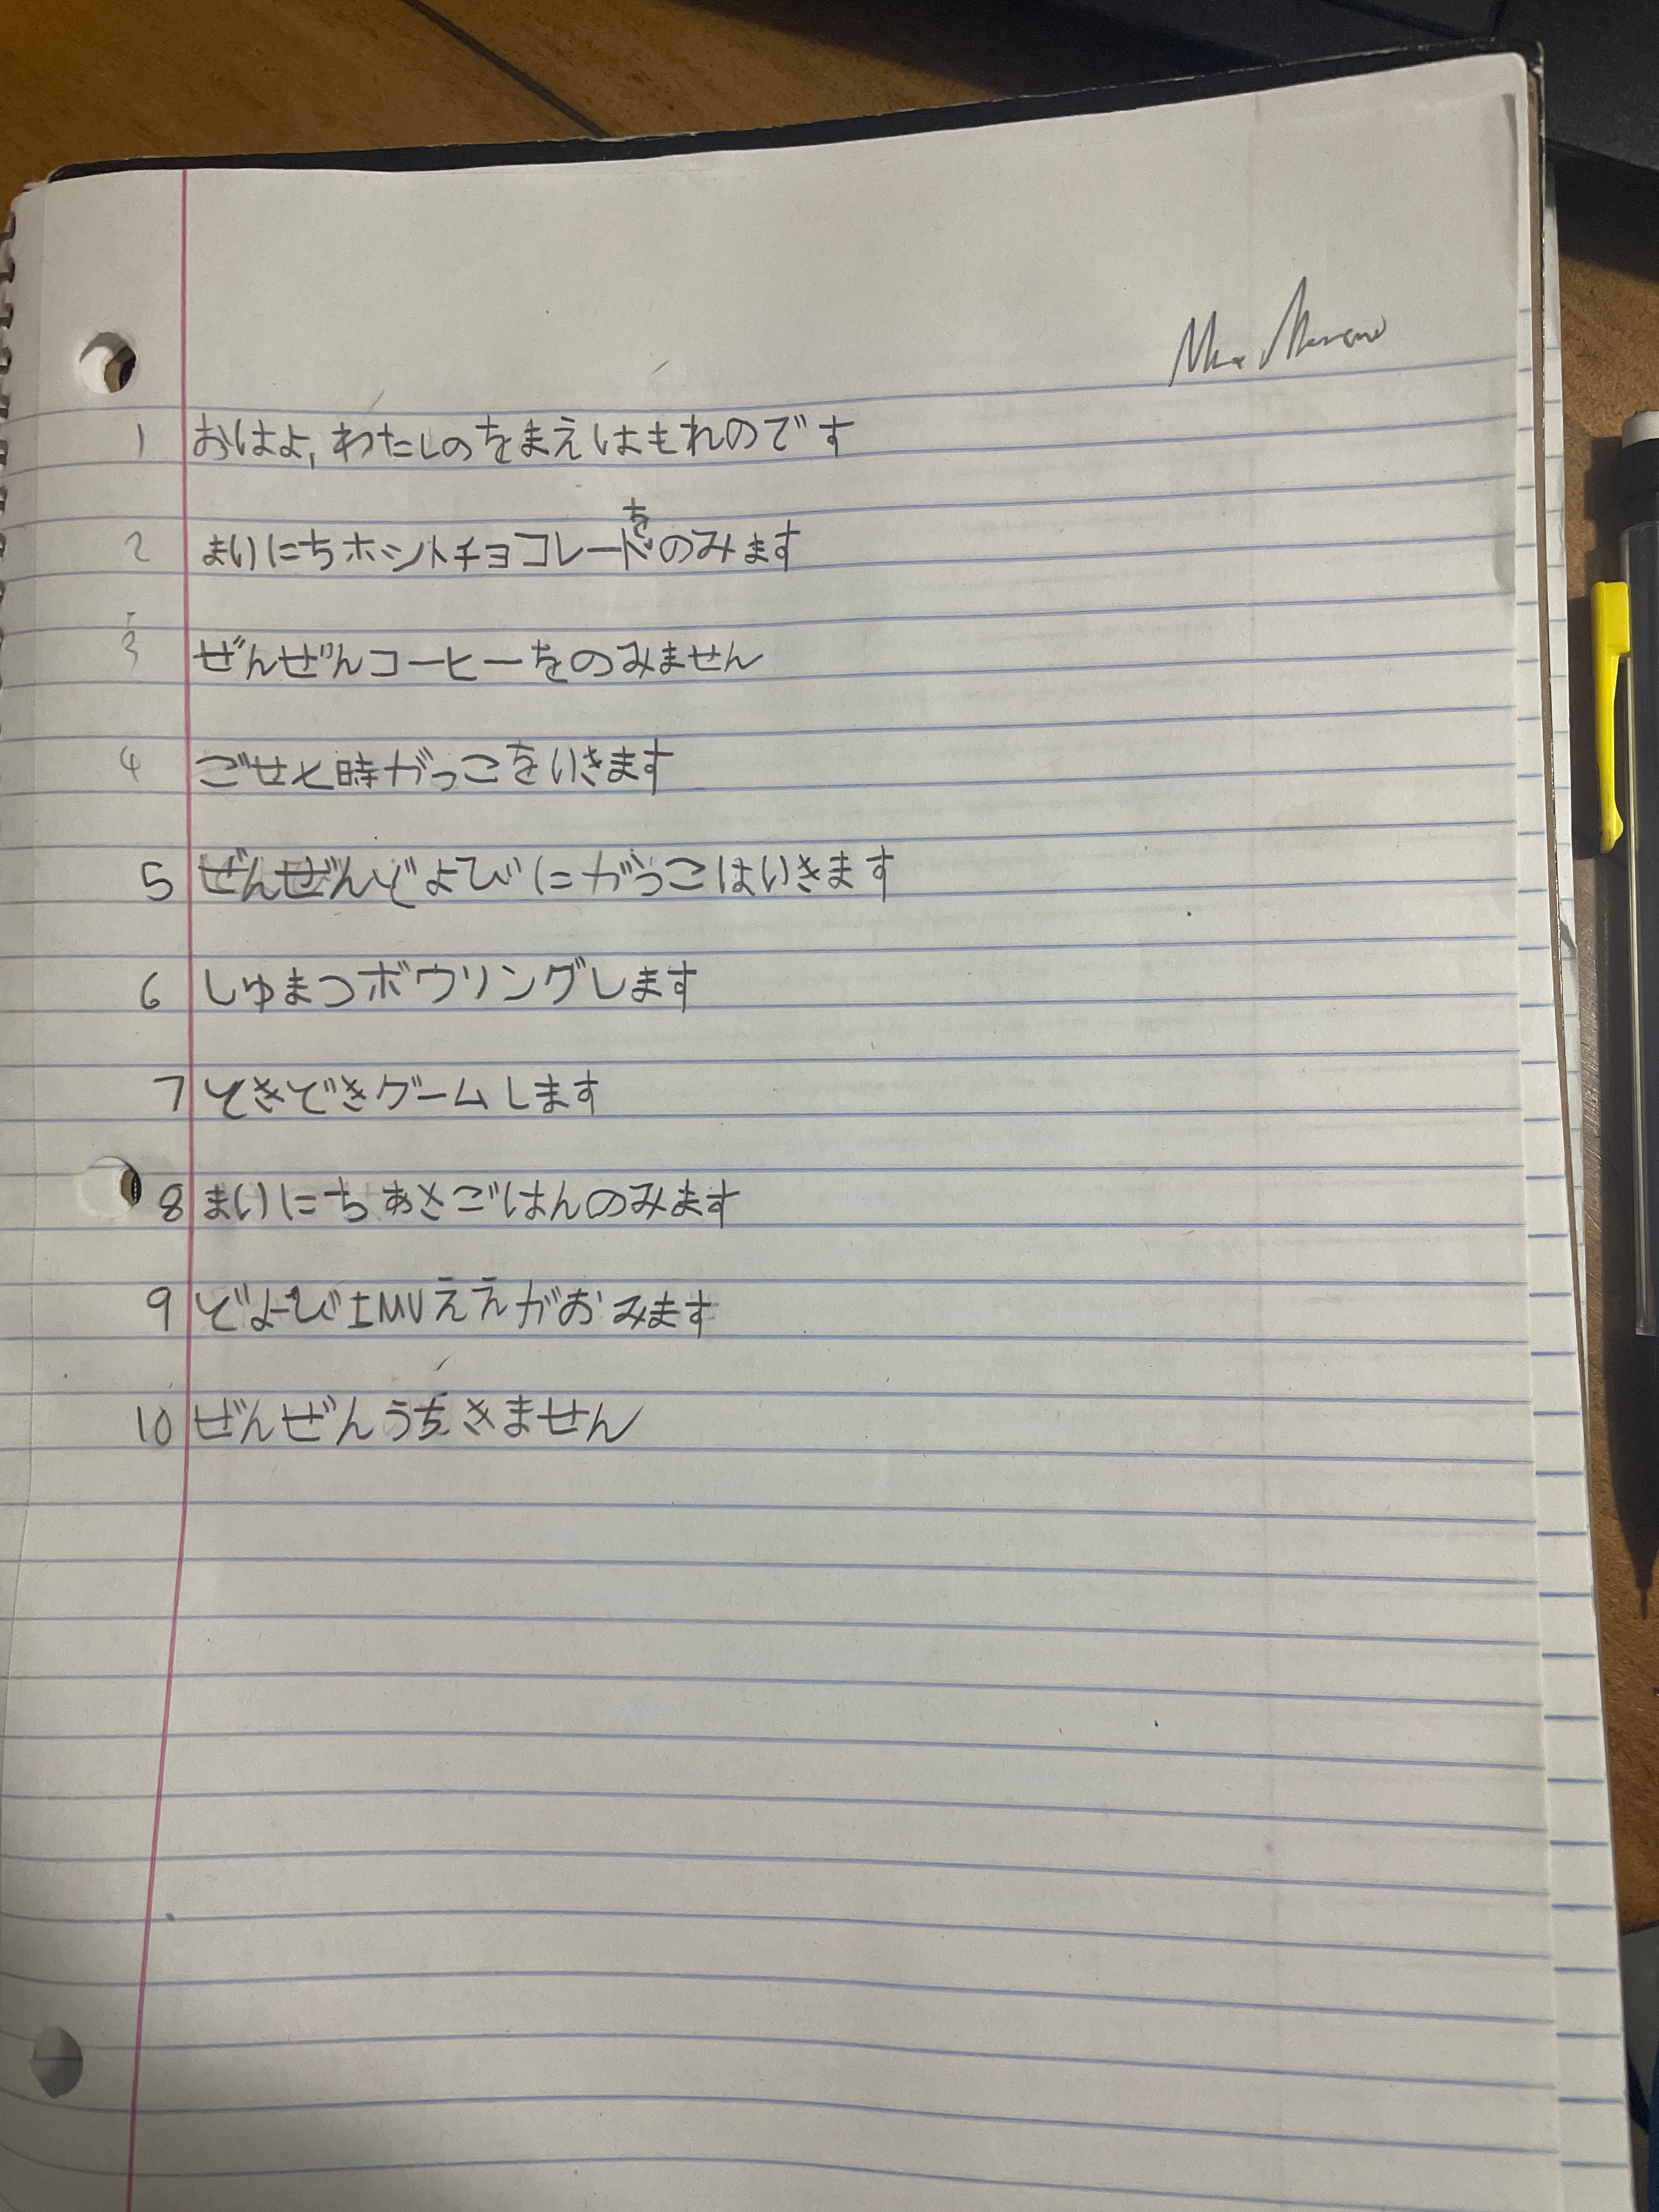 1 おはよ,わたしのをまえはもれのです
2 まいにちホットチョコレートをのみます
3 ぜんぜんコーヒーをのみません
4 ごせと時がっこをいきます
5 どよびにがっこはいきます
6 しゅまつボウリングします
7 ときどきゲームします
8 まいにちあさごはんのみます
9 どよびIMVええがおみます
10 ぜんぜんうちきません